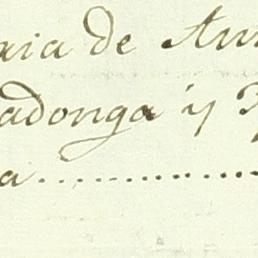 aria de An
adonga y
a..............